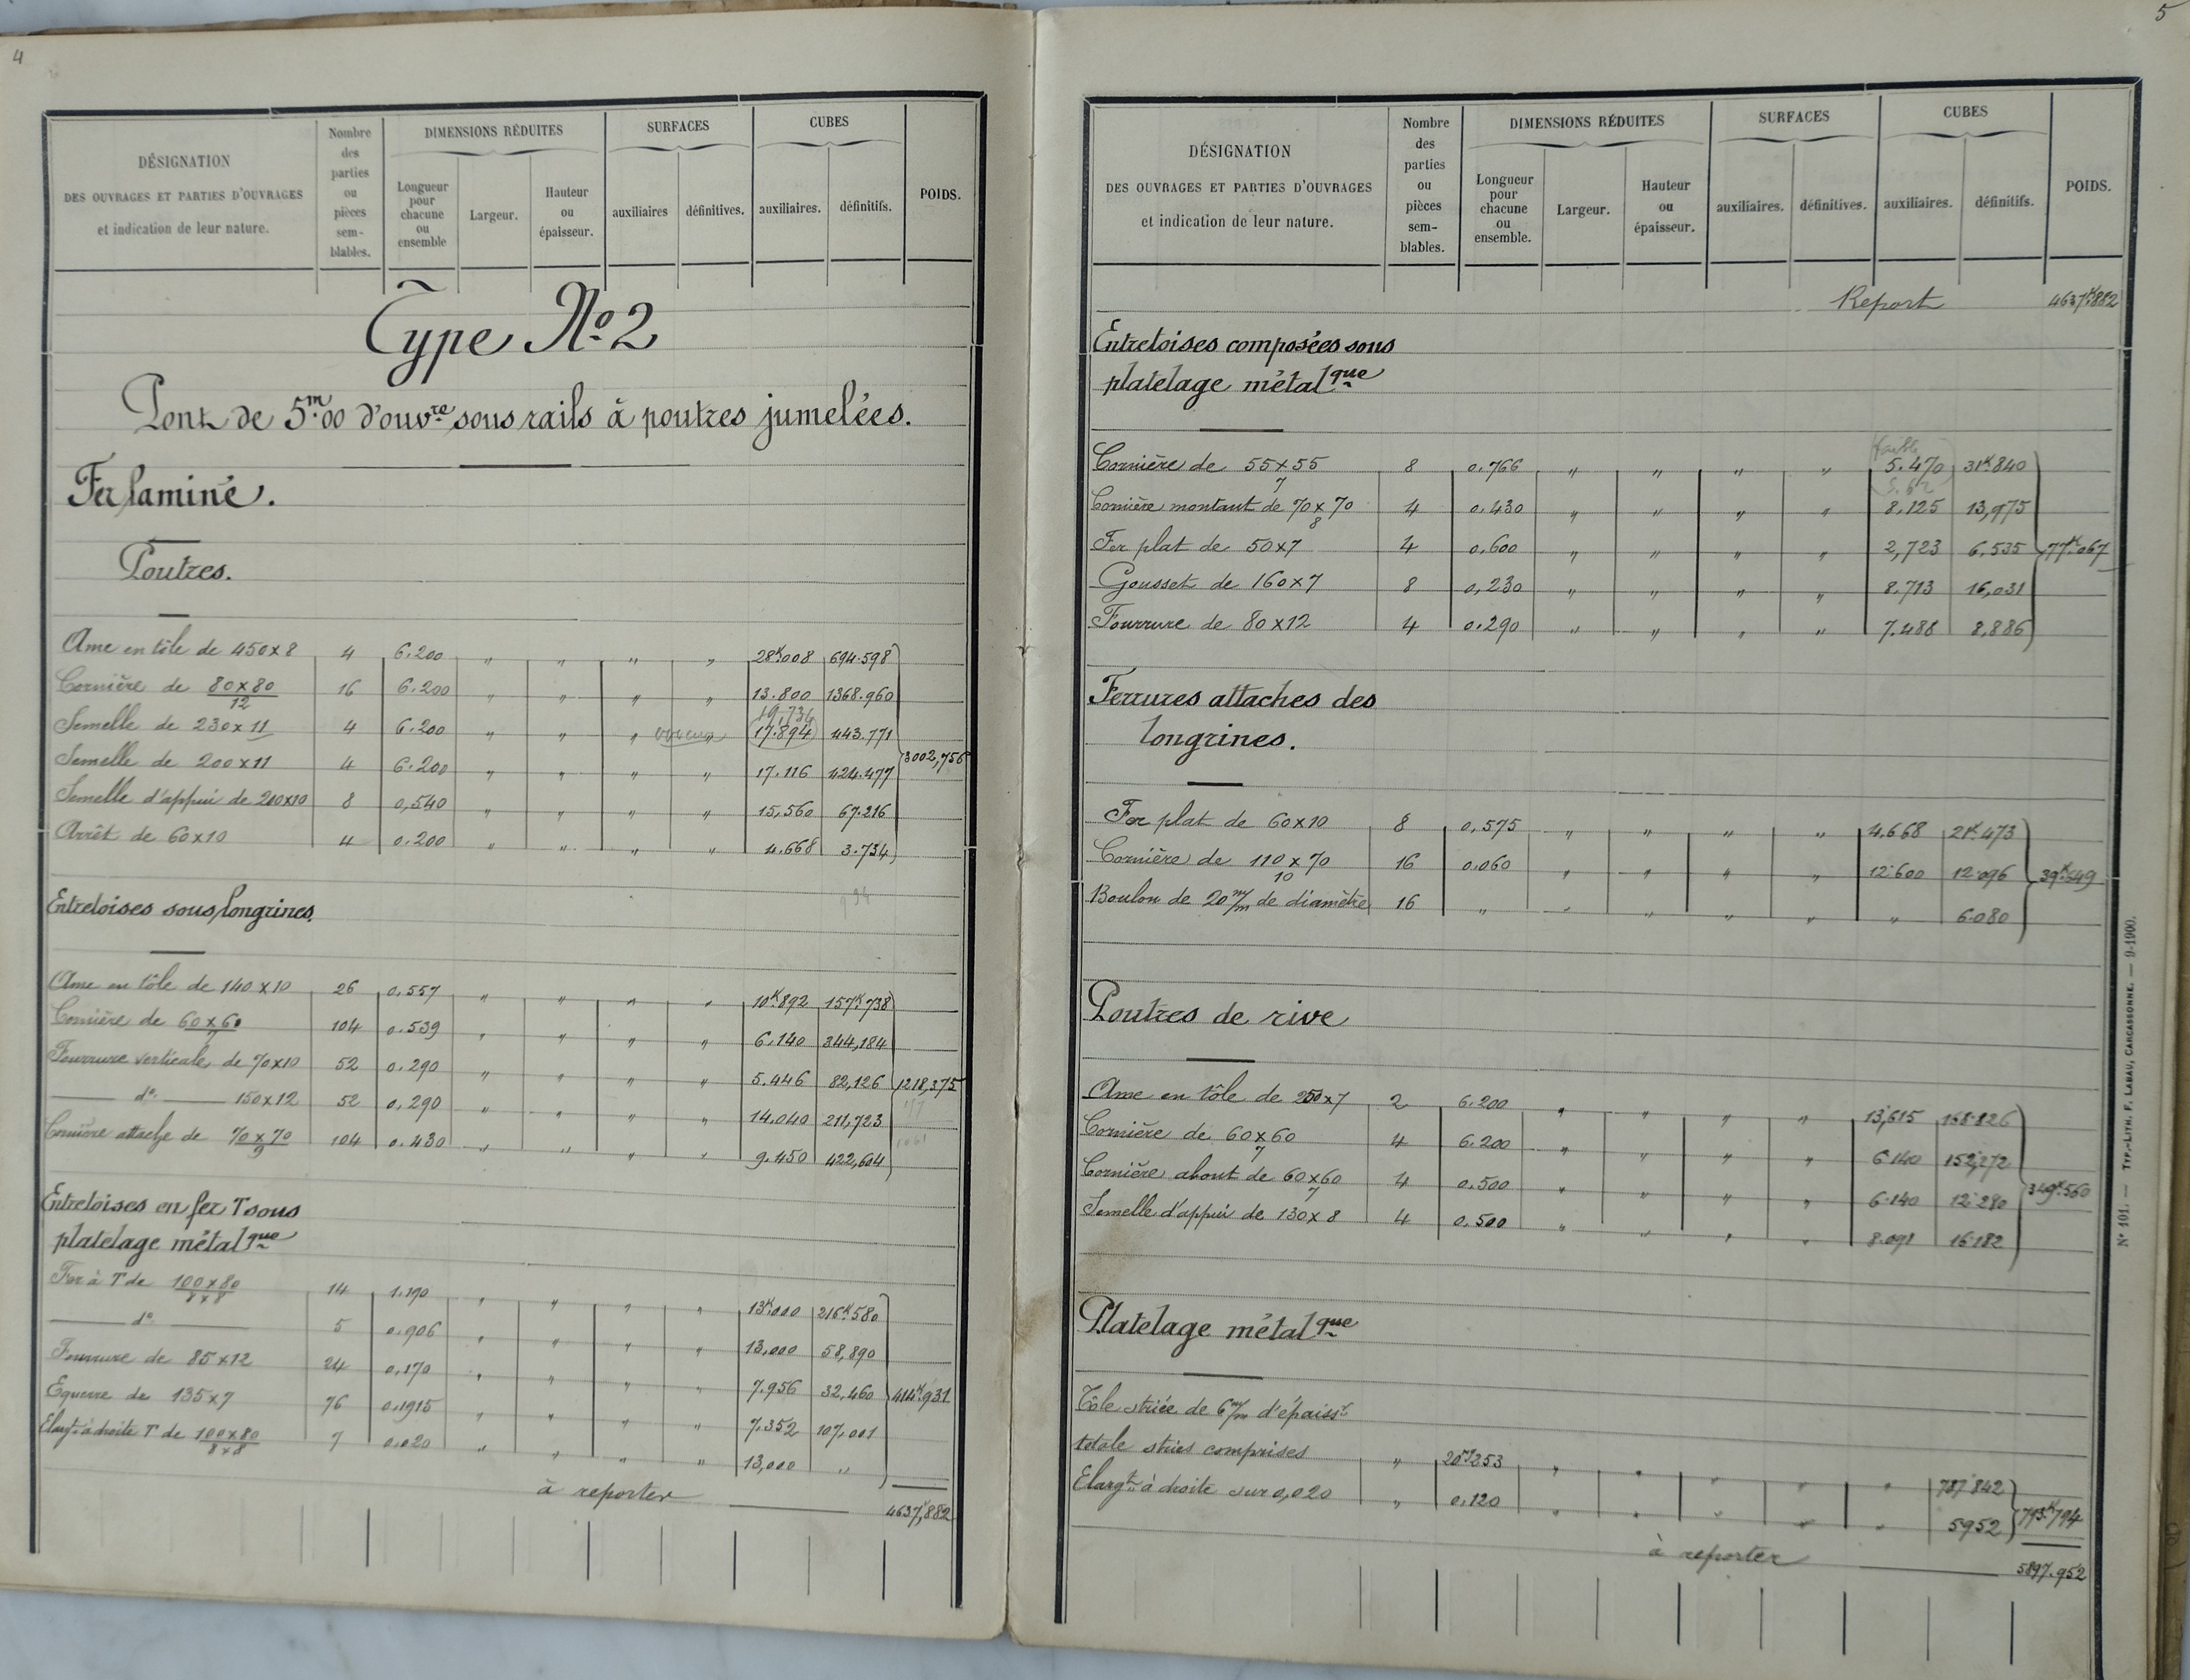 4
DÉSIGNATION
DES OUVRAGES ET PARTIES D'OUVRAGES
et indication de leur nature.
Nombre
des
parties
ou
pièces
sem-
blables.
DIMENSIONS RÉDUITES
Longueur
pour
chacune
ou
ensemble
Largeur.
Hauteur
ou
épaisseur.
SURFACES
auxiliaires
définitives.
CUBES
auxiliaires.
définitifs.
POIDS.
Type No 2
Pont de 5m.00 d'ouvre sous rails à poutres jumelées.
Fer laminé.
Poutres.
Ame en tôle de 450x8 4 6.200 " " " " 28K.008 694.598
Cornière de 80x80/12 16 6.200 " " " " 13.800 1368.960
19,734
Semelle de 230x11 4 6.200 " " " " 17.894 443.771
Semelle de 200x11 4 6.200 " " " " 17.116 424.477 3002,756
Semelle d'appui de 200x10 8 0,540 " " " " 15,560 67.216
Arrêt de 60x10 4 0.200 " " " " 4.668 3.734
Entretoises sous longrines.
Ame en tôle de 140x10 26 0.557 " " " " 10K.892 157K.738
Cornière de 60x60/7 104 0.539 " " " " 6.140 344,184
Fourrure verticale de 70x10 52 0.290 " " " " 5.446 82,126 1218,375
do 150x12 52 0.290 " " " " 14.040 211,723
Cornière attache de 70x70/9 104 0.430 " " " " 9.450 422,604
Entretoises en fer T sous
platelage métalque
Fer à T de 100x80/8x8 14 1.190 " " " " 13K.000 216K.580
do 5 0.906 " " " " 13,000 58,890
Fourrure de 85x12 24 0.170 " " " " 7.956 32.460 414K.931
Equerre de 135x7 76 0.1915 " " " " 7.352 107,001
Elargt à droite T de 100x80/8x8 7 0.020 " " " " 13,000 "
à reporter 4637,882
5
DÉSIGNATION
DES OUVRAGES ET PARTIES D'OUVRAGES
et indication de leur nature.
Nombre
des
parties
ou
pièces
sem-
blables.
DIMENSIONS RÉDUITES
Longueur
pour
chacune
ou
ensemble.
Largeur.
Hauteur
ou
épaisseur.
SURFACES
auxiliaires.
définitives.
CUBES
auxiliaires.
définitifs.
POIDS.
Report 4637K.882
Entretoises composées sous
platelage métalque
faible
Cornière de 55x55/7 8 0.766 " " " " 5.470 31K.840
Cornière montant de 70x70/8 4 0.430 " " " " 8.125 13,975
Fer plat de 50x7 4 0.600 " " " " 2,723 6.535 77K.067
Gousset de 160x7 8 0,230 " " " " 8.713 16,031
Fourrure de 80x12 4 0.290 " " " " 7.488 8,886
Ferrures attaches des
longrines.
Fer plat de 60x10 8 0.575 " " " " 4.668 21K.473
Cornière de 110x70/10 16 0.060 " " " " 12.600 12.096 39K.649
Boulon de 20m/m de diamètre 16 " " " " " " 6.080
Poutres de rive
Ame en tôle de 250x7 2 6.200 " " " " 13,615 168.826
Cornière de 60x60/7 4 6.200 " " " " 6.140 152,272
Cornière about de 60x60/7 4 0.500 " " " " 6.140 12.280 349K.560
Semelle d'appui de 130x8 4 0.500 " " " " 8.091 16.182
Platelage métalque
Tôle striée de 6m/m d'épaissr
totale stries comprises " 20mq253 " " " " " 787.842
Elargt à droite sur 0,020 " 0.120 " " " " " 5952 793K.794
à reporter 5897.952
No 101. — TYP.-LITH. F. LABAU, CARCASSONNE. — 9-1900.